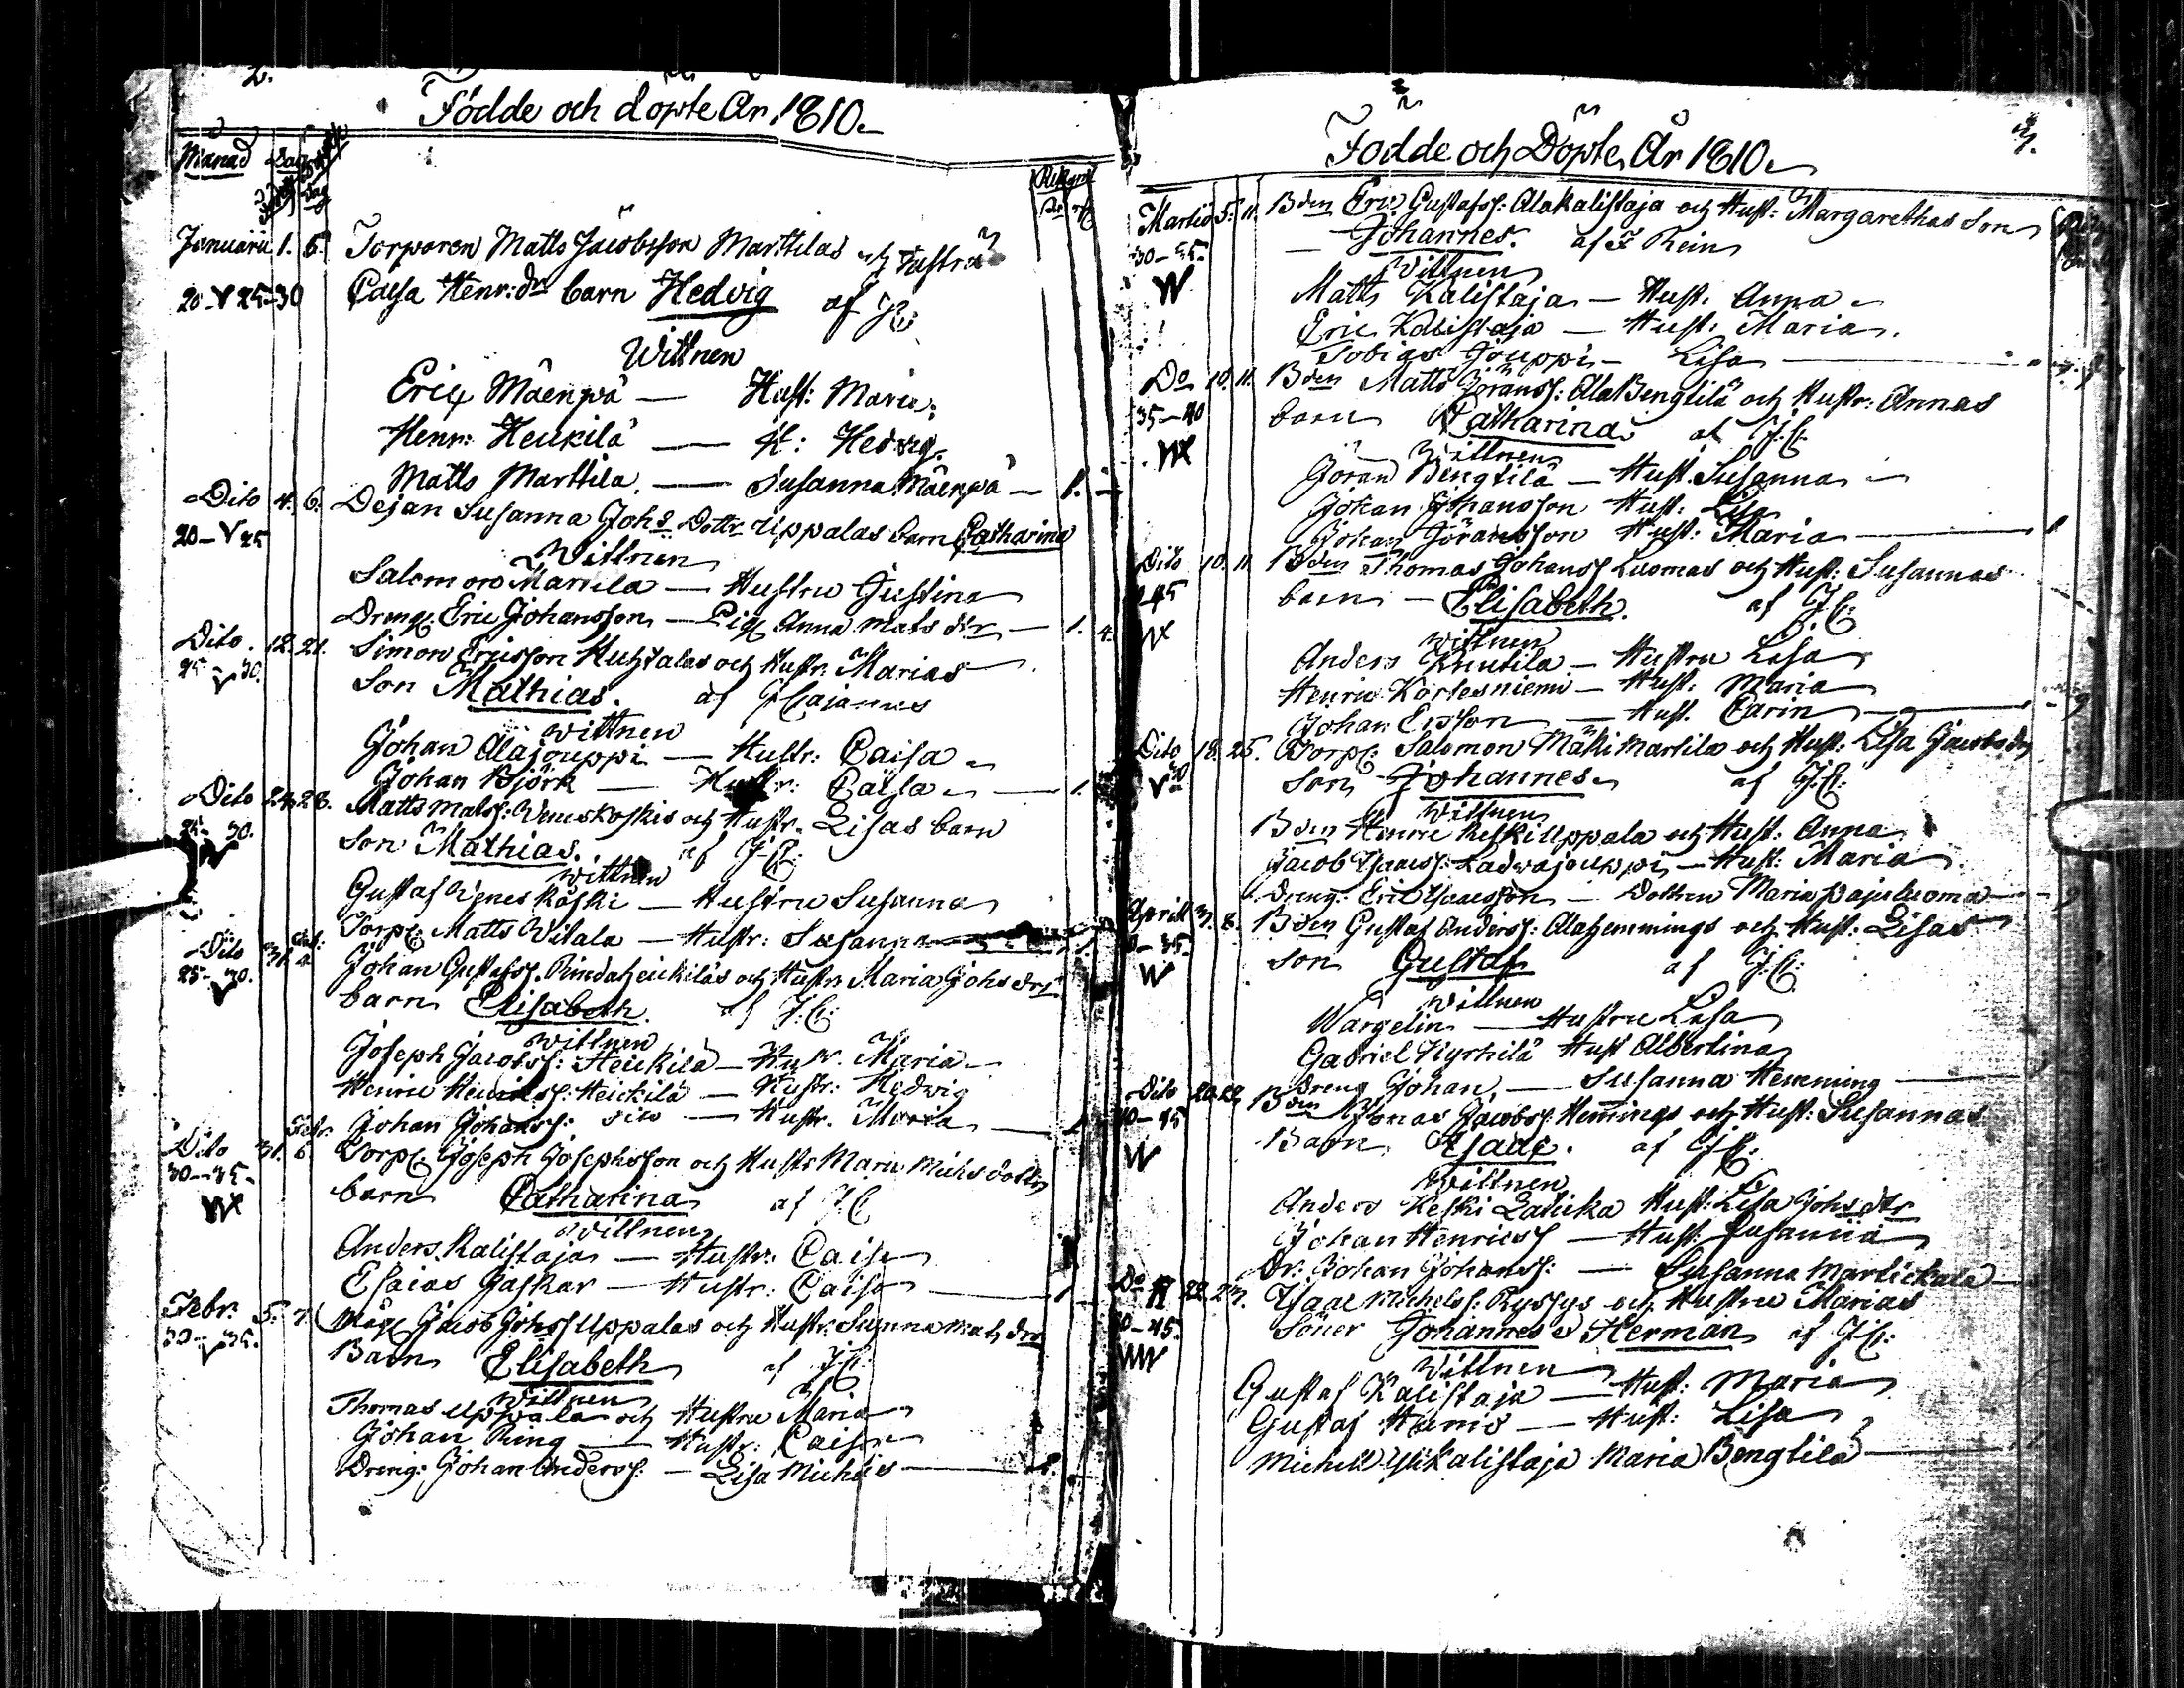 2.
Födde och döpte År 1810.
Månad
dag
Januarii 1. 6. Torparen Matts Jacobsson Marttilas och Hustru
20-V 25-30 Caisa Henr: dr barn Hedvig af JC:
Wittnen
Eric Mäenpä — Hust: Maria:
Henr: Heickilä — H: Hedvig.
Matts Marttila. — Susanna Mäenpä — 1.
Dito 4. 6. Dejan Susanna Johs Dottr Uppalas barn Catharina
20-V 25
Wittnen
Salomon Marttila — Hustru Justina
Dreng: Eric Johansson — Pig: Anna Mats dtr — 1. 4.
Dito. 12. 21. Simon Ericsson Huhtalas och Hustr. Marias
25-V 30. Son Mathias. af J Cajanus
Wittnen
Johan Alajouppi — Hustr: Caisa
Johan Björk — Hustr: Caisa — 1.
Dito 24. 28. Matts Matss: Weneskoskis och Hustr. Lisas barn
25-V 30. Son Mathias. af J.C:
Wittnen
Gustaf Weneskoski — Hustru Susanna
Torp: Matts Witala — Hustr: Susanna
Dito 31. 4. Johan Gustafss. Rindaheickiläs och Hustr. Maria Johs dr
25-V 30. barn Elisabeth. af J:C:
Wittnen
Joseph Jacobss: Heickilä — Hustr. Maria
Henric Henricss: Heickilä — Hustr: Hedvig
Johan Johanss: dito — Hustr. Maria
Febr.
Dito 31. 6. Torp: Joseph Josephsson och Hustr Maria Michs dotters
30-35. barn Catharina af J.C
W
Wittnen
Anders Kalistaja — Hustr: Caisa
Esaias Gaskar — Hustr: Caisa
Febr. 5. 7. Måg: Jacob Johss Uppalas och Hustr. Susanna Mats drs
30-V 35. Barn Elisabeth af J.C:
Wittnen
Thomas Uppala och Hustru Maria
Johan Ring — Hustr: Caisa
Dreng: Johan Anderss: — Lisa Michels
3.
Födde och Döpte År 1810.
Martii 5. 11. Bden Eric Gustafss: Alakalistaja och Hust: Margarethas Son
30-35. — Johannes. af F Rein
W
Wittnen
Matts Kalistaja — Hust. Anna
Eric Kalistaja — Hust. Maria.
Tobias Jouppi — Lisa
Do 10. 11. Bden Matts Jöranss: Ala Bengtilä och Hustr: Annas
35-40 barn Catharina af J.C:
Wittnen
Jöran Bengtilä — Hust. Susanna
Johan Johansson Hust: Lisa
Johan Jöransson Hust: Maria
Dito 10. 11 Bden Thomas Johanss Luomas och Hust: Susannas
45 barn — Elisabeth. af J C:
Wittnen
Anders Knuutila — Hustru Lisa
Henric Kortesniemi — Hust: Maria
Johan Ersson — Hust. Carin
Dito 18. 25. Torp: Salomon Mäki Martilas och Hust: Lisa Jacobs dr
Son Johannes af J.C:
Wittnen
Bden Henric Keski Uppala och Hust: Anna
Jacob Isaacss: Ladwajouppi — Hust: Maria
Dreng: Eric Isaacsson — Dottren Maria Pajuluoma
Aprill 3. 8. Bden Gustaf Anderss: Alahemmings och Hust: Lisas
-35. Son Gustaf af J:C:
W
Wittnen
Wargelin — Hustru Lisa
Gabriel Kyrkilä Hust Albertina
Dreng Johan — Susanna Hemming
Dito 20. 22. Bden Jonas Jacobss: Hemmings och Hust: Susannas
40-45 Barn Isaac. af J C:
W
Wittnen
Anders Keski Lahika Hust: Lisa Johs dtr
Johan Henricss — Hust: Susanna
Dr: Johan Johanss: — Susanna Martickala
Do 22. 23. Isaac Michelss: Ryssys och Hustru Marias
40-45. Söner Johannes o Herman af J.C:
Wittnen
Gustaf Kalistaja — Hust: Maria
Gustaf Hanis — Hust: Lisa
Michell Ylikalistaja Maria Bengtilä